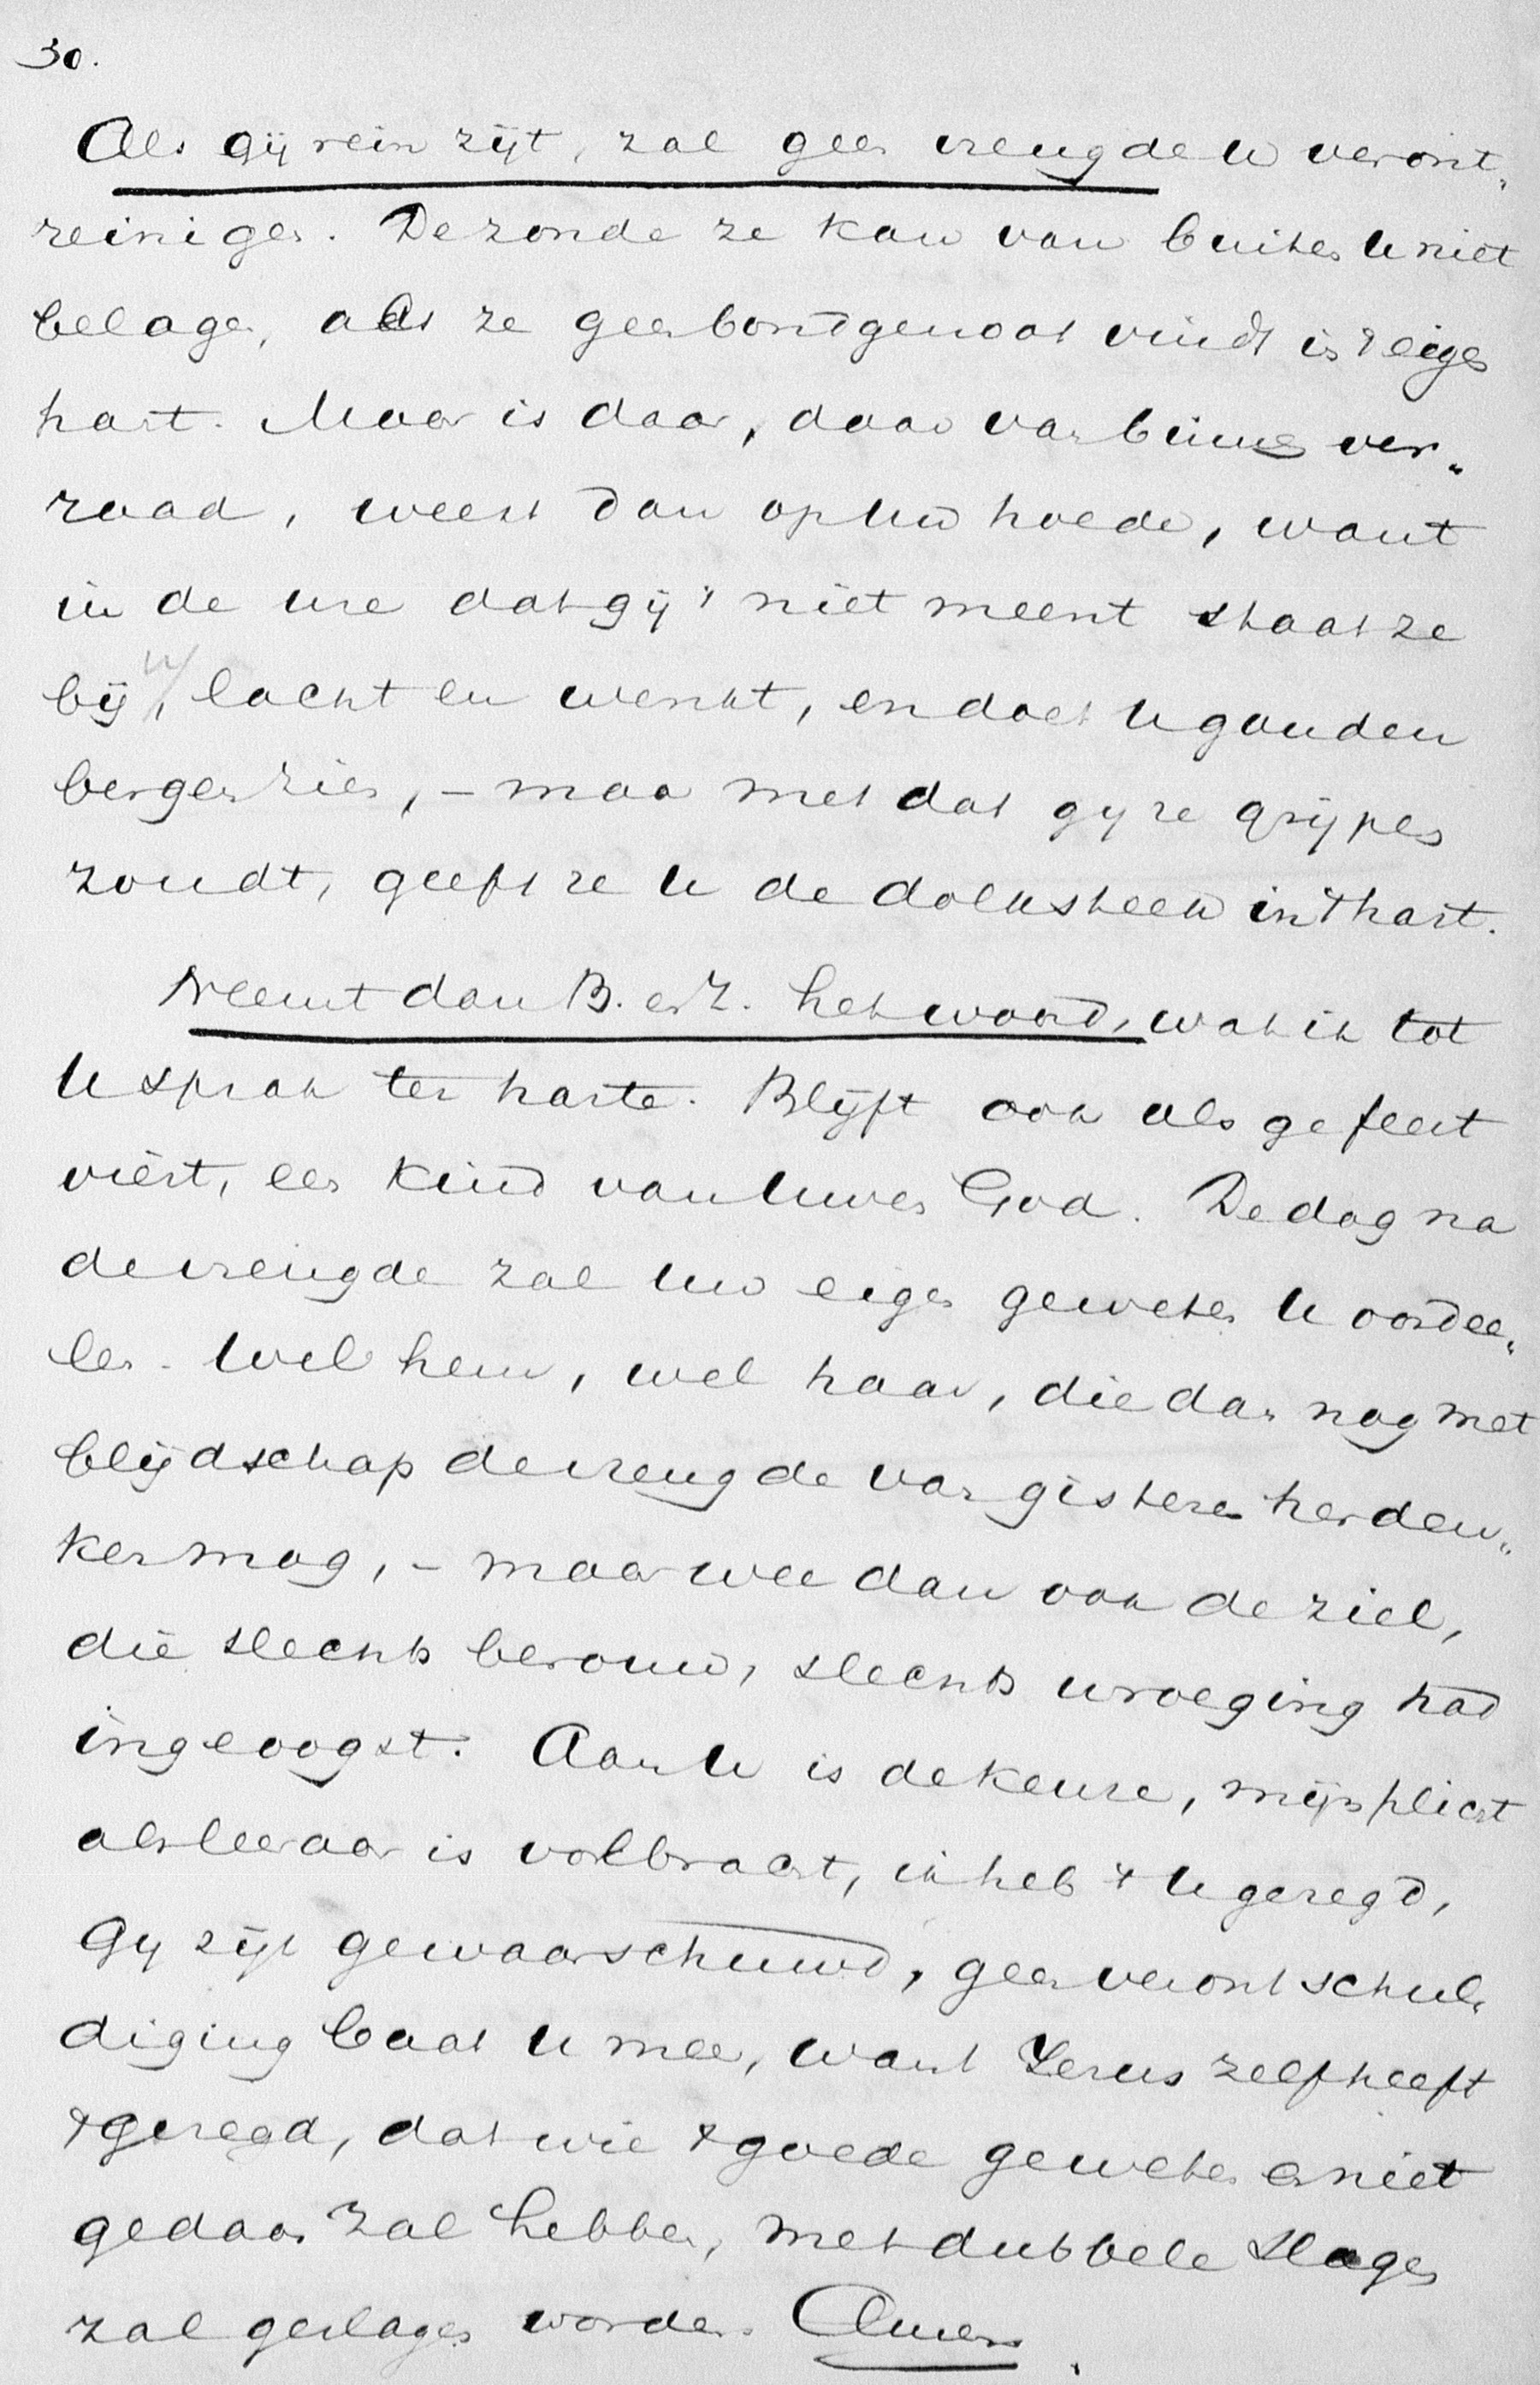 30.
Als gij rein zijt, zal geen vreugde u veront„
reinigen. De zonde ze kan van buiten u niet
belagen, als ze geen bontgenoot vindt in 't eigen
hart. Maar is daar, daar van binnen ver„
raad, weest dan op uw hoede, want
in de ure dat gij 't niet meent staat ze
bij u, lacht en wenkt, en doet u gouden
bergen zien, – maar met dat gij ze grijpen
zoudt, geeft ze u de dolksteek in 't hart.
Neemt dan B. en Z. het woord, wat ik tot
u sprak ter harte. Blijft ook als ge feest
viert, een kind van uwen God. De dag na
de vreugde zal uw eigen geweten u oordee„
len. Wel hem, wel haar, die dan nog met
blijdschap de vreugde van gisteren herden„
ken mag, – maar wee dan ook de ziel,
die slechts berouw, slechts wroeging had
ingeoogst. Aan u is de keure, mijn plicht
als leeraar is volbracht, ik heb 't u gezegd,
Gij zijt gewaarschuwd, geen verontschul„
diging baat u meer, want Jezus zelf heeft
't gezegd, dat wie 't goede geweten en niet
gedaan zal hebben, met dubbele slagen
zal geslagen worden. Amen.